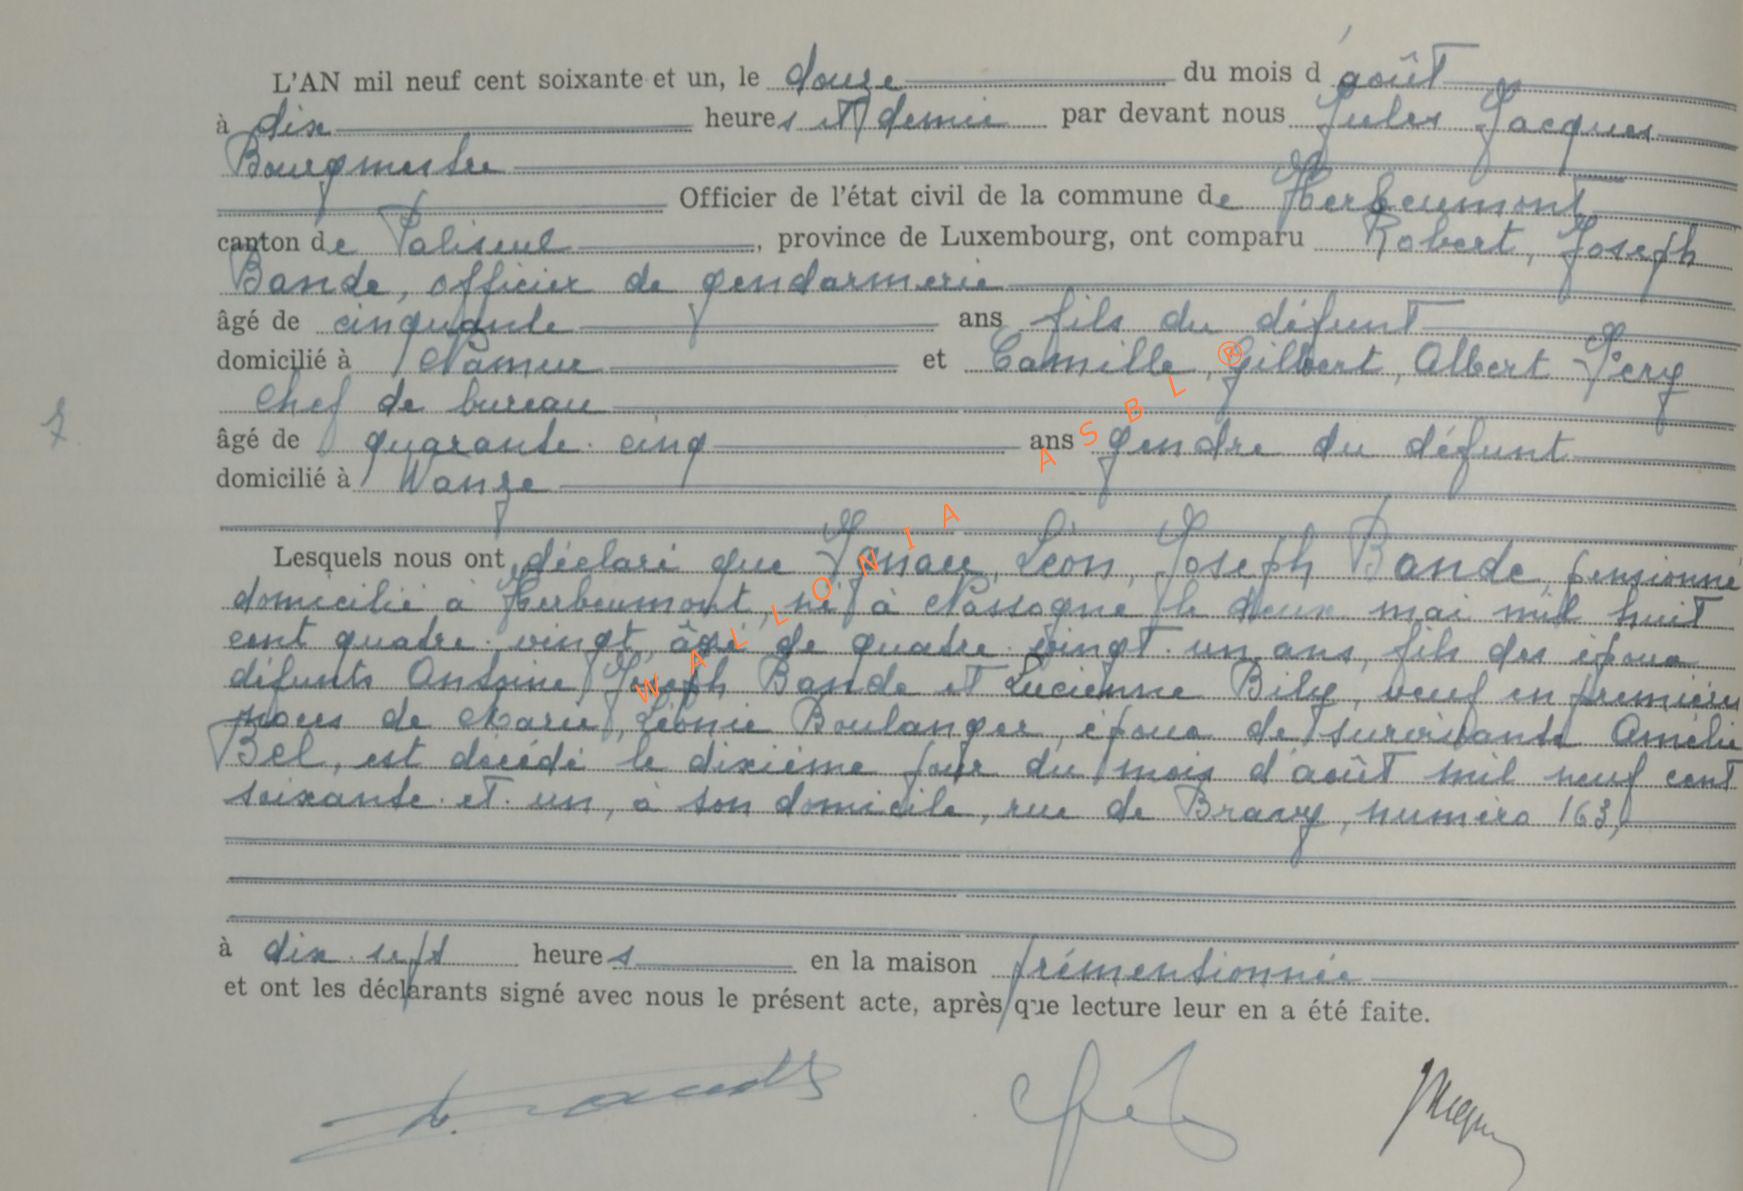 L'AN mil neuf cent soixante et un, le douze du mois d'août
à dix heures et demie par devant nous Jules Jacques
Bourgmestre
Officier de l'état civil de la commune de Herbeumont
canton de Paliseul, province de Luxembourg, ont comparu Robert, Joseph
Bande, officier de gendarmerie
âgé de cinquante ans fils du défunt
domicilié à Namur et Camille, Gilbert, Albert
Chef de bureau
7.
âgé de quarante-cinq ans gendre du défunt
domicilié à Wanze
Lesquels nous ont déclaré que Ignace, Léon, Joseph Bande, pensionné
domicilié à Herbeumont, né à Nassogne le deux mai mil huit
cent quatre-vingt, âgé de quatre-vingt-un ans, fils des époux
défunts Antoine Joseph Bande et Lucienne Bily, veuf en premières
noces de Marie, Léonie Boulanger, époux de survivante Amélie
Bel, est décédé le dixième jour du mois d'août mil neuf cent
soixante-et-un, à son domicile, rue de Bravy, numéro 163,
à dix-sept heures en la maison prémentionnée
et ont les déclarants signé avec nous le présent acte, après que lecture leur en a été faite.
WALLONIA ASBL ®